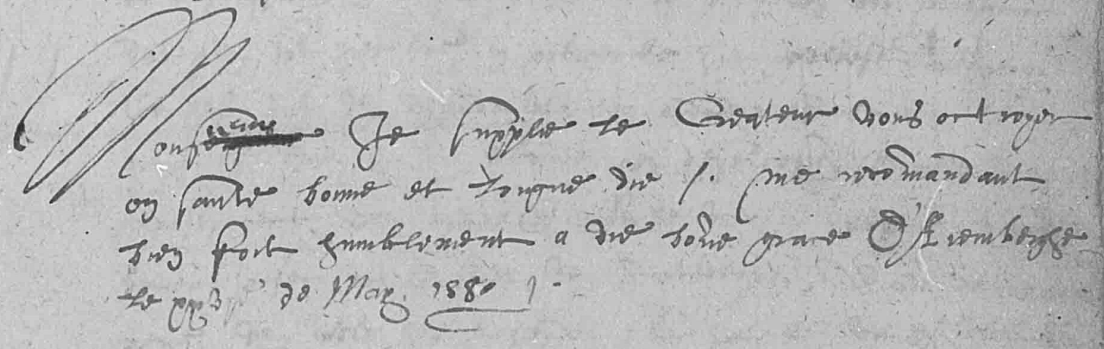 Monseigneur Je supplie le Createur vous octroyer
en sante bonne et longue vie /. me recõmandant
bien fort humblement a vre bõne grace D'Aremberghe
le de May 1580 /.